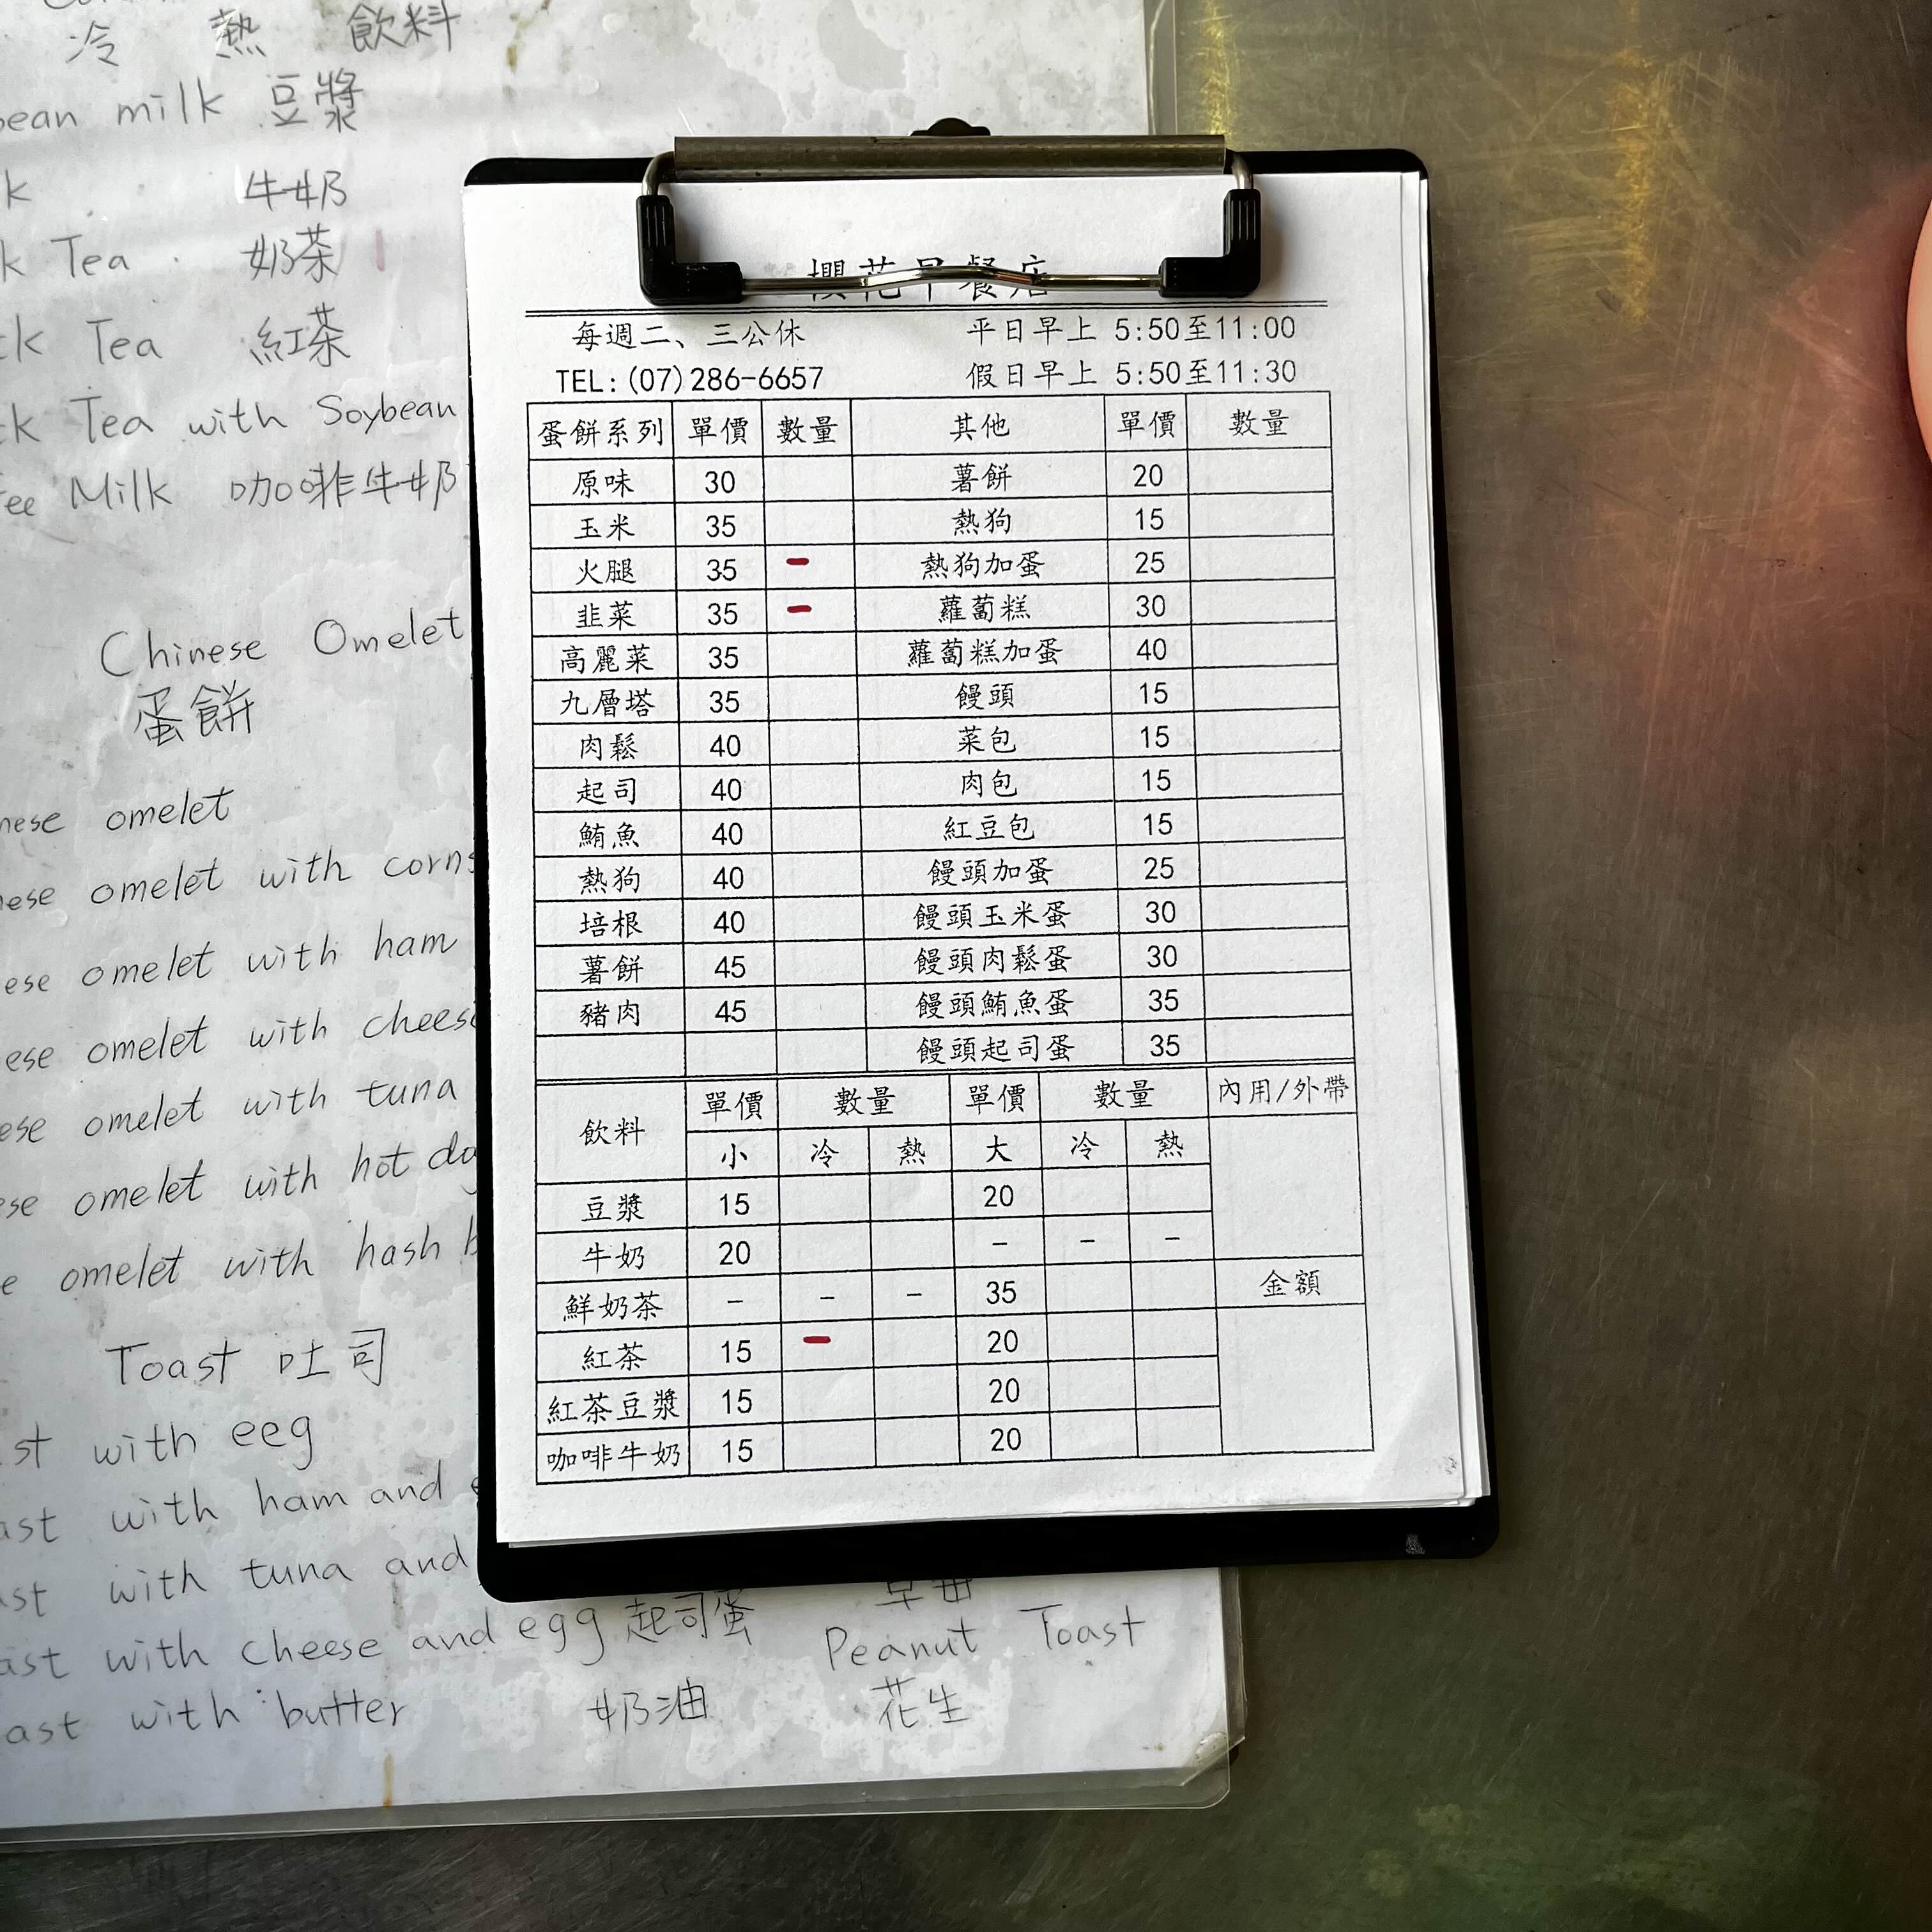 冷 熱 飲料
bean milk 豆漿
牛奶
Tea 奶茶
Tea 紅茶
Tea with Soybean
Milk 咖啡牛奶
Chinese Omelet
蛋餅
omelet
omelet with corns
omelet with ham
omelet with cheese
omelet with tuna
omelet with hot dog
omelet with hash
Toast 吐司
with eeg
with ham and
with tuna and
with cheese and egg 起司蛋
with butter 奶油
Peanut Toast
花生
櫻花早餐店
每週二、三公休 平日早上 5:50至11:00
TEL:(07)286-6657 假日早上 5:50至11:30
蛋餅系列 單價 數量 其他 單價 數量
原味 30 薯餅 20
玉米 35 熱狗 15
火腿 35 - 熱狗加蛋 25
韭菜 35 - 蘿蔔糕 30
高麗菜 35 蘿蔔糕加蛋 40
九層塔 35 饅頭 15
肉鬆 40 菜包 15
起司 40 肉包 15
鮪魚 40 紅豆包 15
熱狗 40 饅頭加蛋 25
培根 40 饅頭玉米蛋 30
薯餅 45 饅頭肉鬆蛋 30
豬肉 45 饅頭鮪魚蛋 35
饅頭起司蛋 35
飲料 單價 數量 單價 數量 內用/外帶
小 冷 熱 大 冷 熱
豆漿 15 20
牛奶 20 - - -
鮮奶茶 - - - 35 金額
紅茶 15 - 20
紅茶豆漿 15 20
咖啡牛奶 15 20